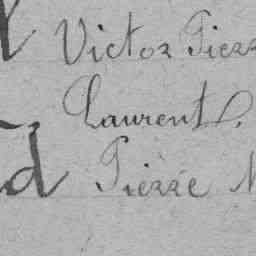 Victor Pierr
Laurent.
d Pierre